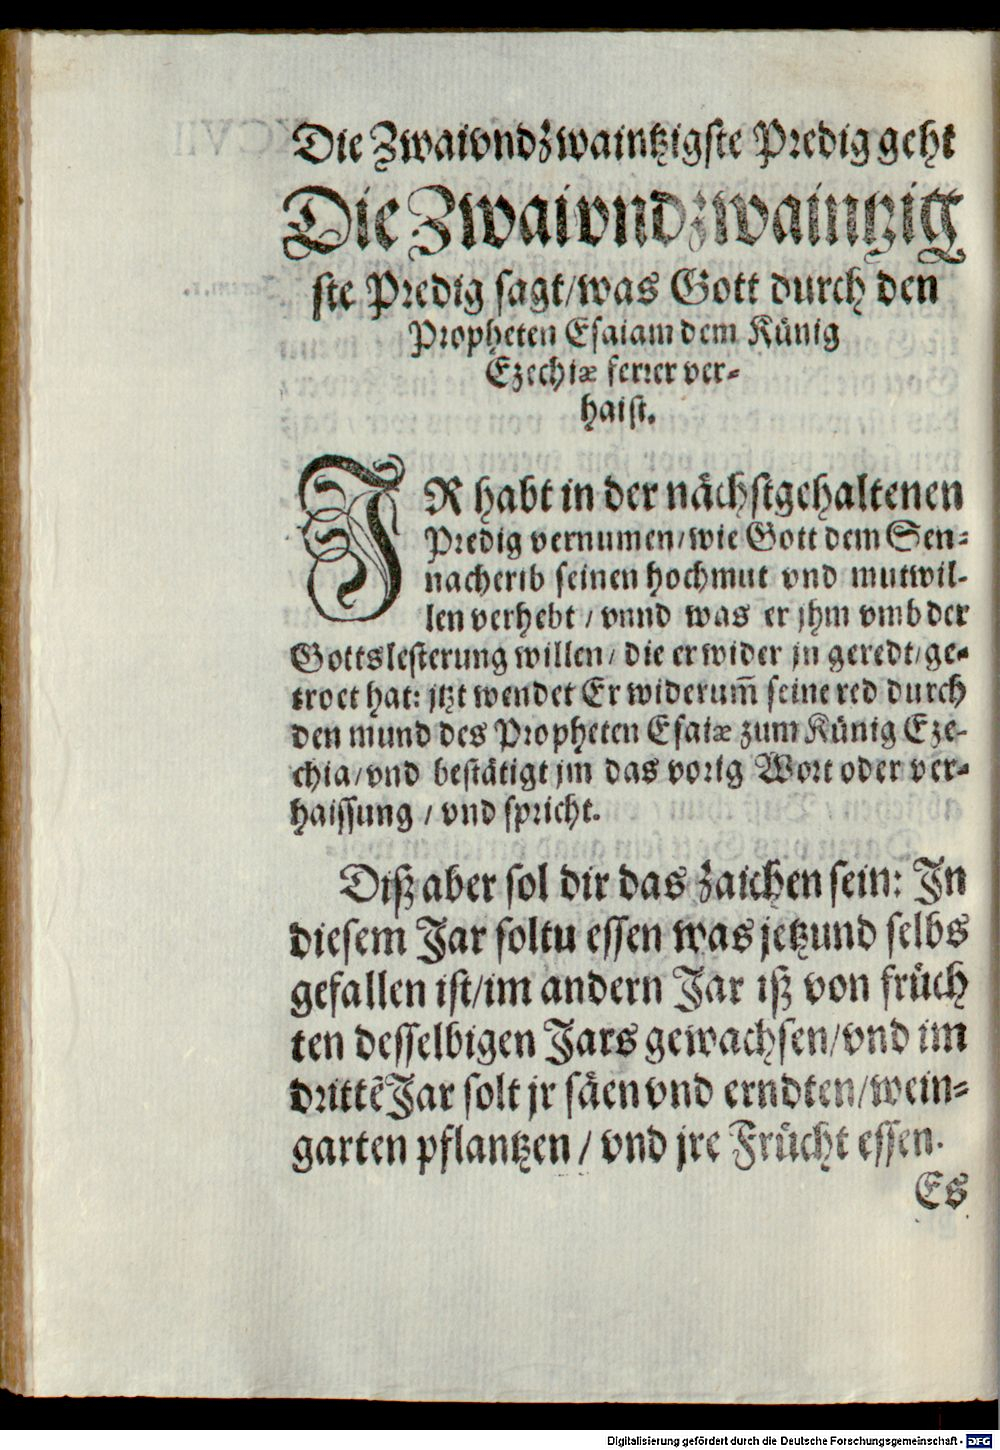 Die Zwaivndzwaintzigste Predig geht
Die Zwaivndzwaintzig
ste Predig sagt/was Gott durch den
Propheten Esaiam dem Künig
Ezechiæ ferrer ver-
haist.
IR habt in der nächstgehaltenen
Predig vernumen/wie Gott dem Sen-
nacherib seinen hochmut vnd mutwil-
len verhebt / vnnd was er jhm vmb der
Gottslesterung willen/ die er wider jn geredt/ge-
troet hat: jtzt wendet Er widerum̃ seine red durch
den mund des Propheten Esaiæ zum Künig Eze-
chia/vnd bestätigt jm das vorig Wort oder ver-
haissung / vnd spricht.
Diß aber sol dir das zaichen sein: In
diesem Jar soltu essen was jetzund selbs
gefallen ist/im andern Jar iß von früch
ten desselbigen Jars gewachsen/vnd im
drittẽ Jar solt jr säen vnd erndten/wein-
garten pflantzen / vnd jre Frücht essen.
Es
Digitalisierung gefördert durch die Deutsche Forschungsgemeinschaft - DFG